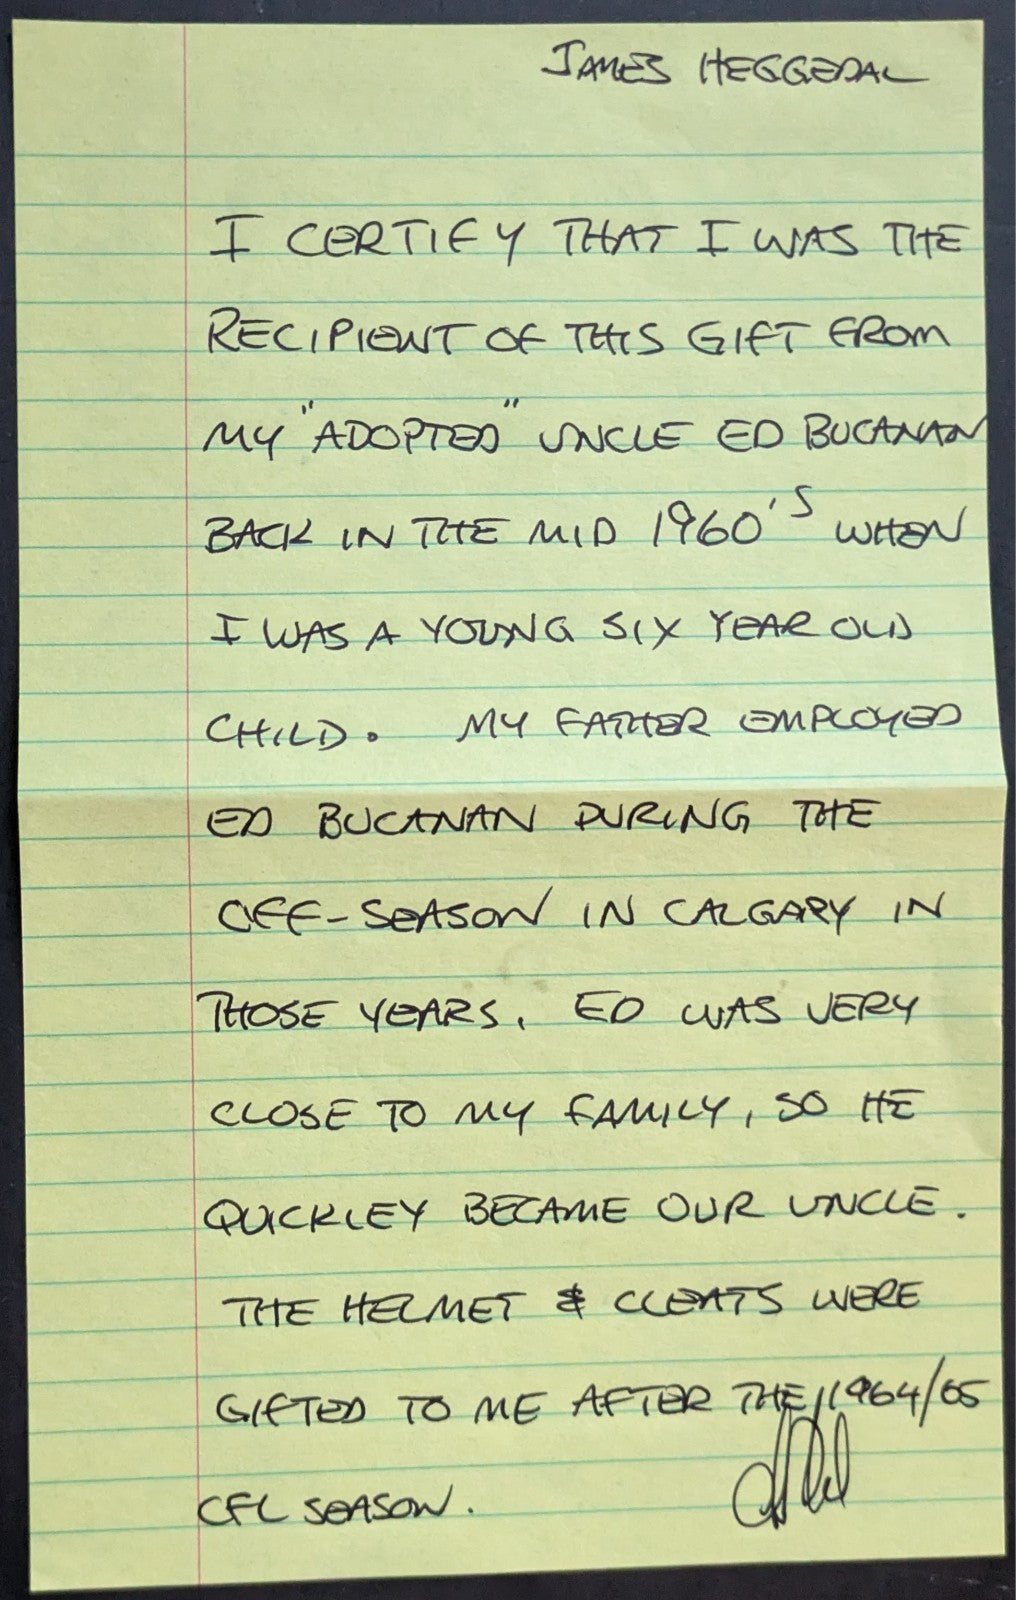 JAMES HEGGEDAL
I CERTIFY THAT I WAS THE
RECIPIENT OF THIS GIFT FROM
MY "ADOPTED" UNCLE ED BUCANAN
BACK IN THE MID 1960'S WHEN
I WAS A YOUNG SIX YEAR OLD
CHILD. MY FATHER EMPLOYED
ED BUCANAN DURING THE
OFF-SEASON IN CALGARY IN
THOSE YEARS. ED WAS VERY
CLOSE TO MY FAMILY, SO HE
QUICKLEY BECAME OUR UNCLE.
THE HELMET & CLEATS WERE
GIFTED TO ME AFTER THE 1964/65
CFL SEASON.